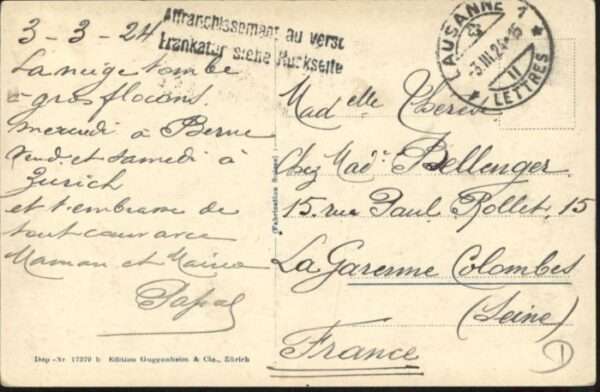 3-3-24
La neige tombe
à gros flocons.
mercredi à Berne
Vend. et samedi à
Zurich
et t'embrasse de
tout coeur avec
Maman et
Papa
Affranchissement au verso
Frankatur siehe Rückseite
LAUSANNE 1
-3.III.24
LETTRES
Madelle
Chez Made Bellenger
15. rue Paul Rollet, 15
La Garenne Colombes
(Seine)
France
(Fabrication Suisse)
Dép.-Nr. 17270 b Edition Guggenheim & Cie., Zürich